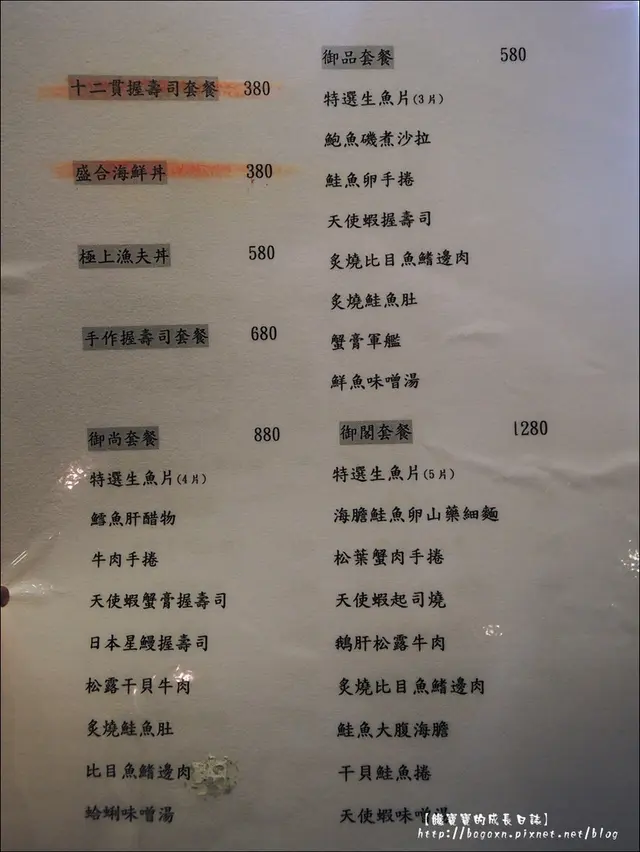 十二貫握壽司套餐 380
盛合海鮮丼 380
極上漁夫丼 580
手作握壽司套餐 680
御品套餐 580
特選生魚片(3片)
鮑魚磯煮沙拉
鮭魚卵手捲
天使蝦握壽司
炙燒比目魚鰭邊肉
炙燒鮭魚肚
蟹膏軍艦
鮮魚味噌湯
御尚套餐 880
特選生魚片(4片)
鱈魚肝醋物
牛肉手捲
天使蝦蟹膏握壽司
日本星鰻握壽司
松露干貝牛肉
炙燒鮭魚肚
比目魚鰭邊肉
蛤蜊味噌湯
御閣套餐 1280
特選生魚片(5片)
海膽鮭魚卵山藥細麵
松葉蟹肉手捲
天使蝦起司燒
鵝肝松露牛肉
炙燒比目魚鰭邊肉
鮭魚大腹海膽
干貝鮭魚捲
天使蝦味噌湯
寶寶的成長日誌】
http://bogoxn.pixnet.net/blog